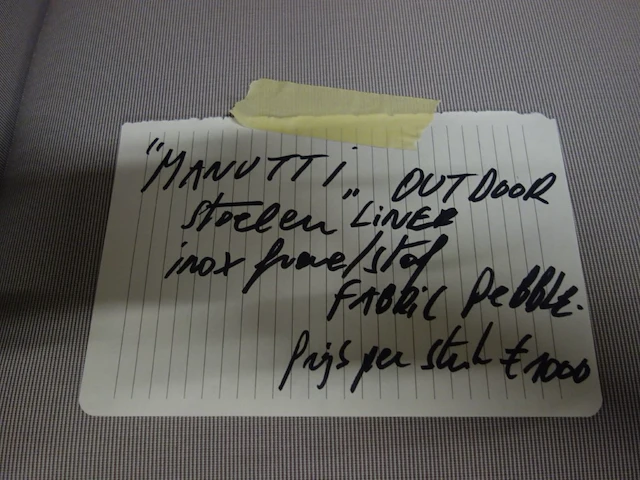 "MANUTTI" OUTDOOR
stoelen LINER
inox frame/stof
FABRIC Pebble.
Prijs per stuk € 1000